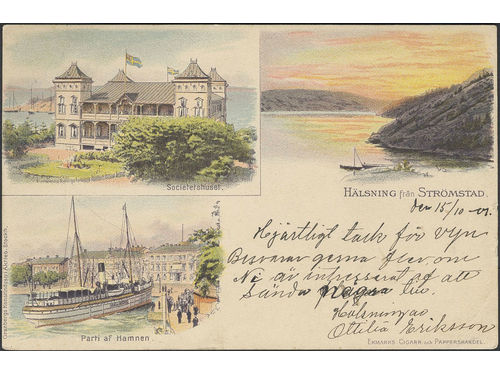 Societetshuset.
HÄLSNING från STRÖMSTAD.
den 15/10 -01.
Hjärtligt tack för vyn
Besvarar gerna fler, om
Ni är intresserad af att
sända några till.
Hälsning av
Ottilia Eriksson
Parti af Hamnen.
EKMARKS CIGARR- OCH PAPPERSHANDEL.